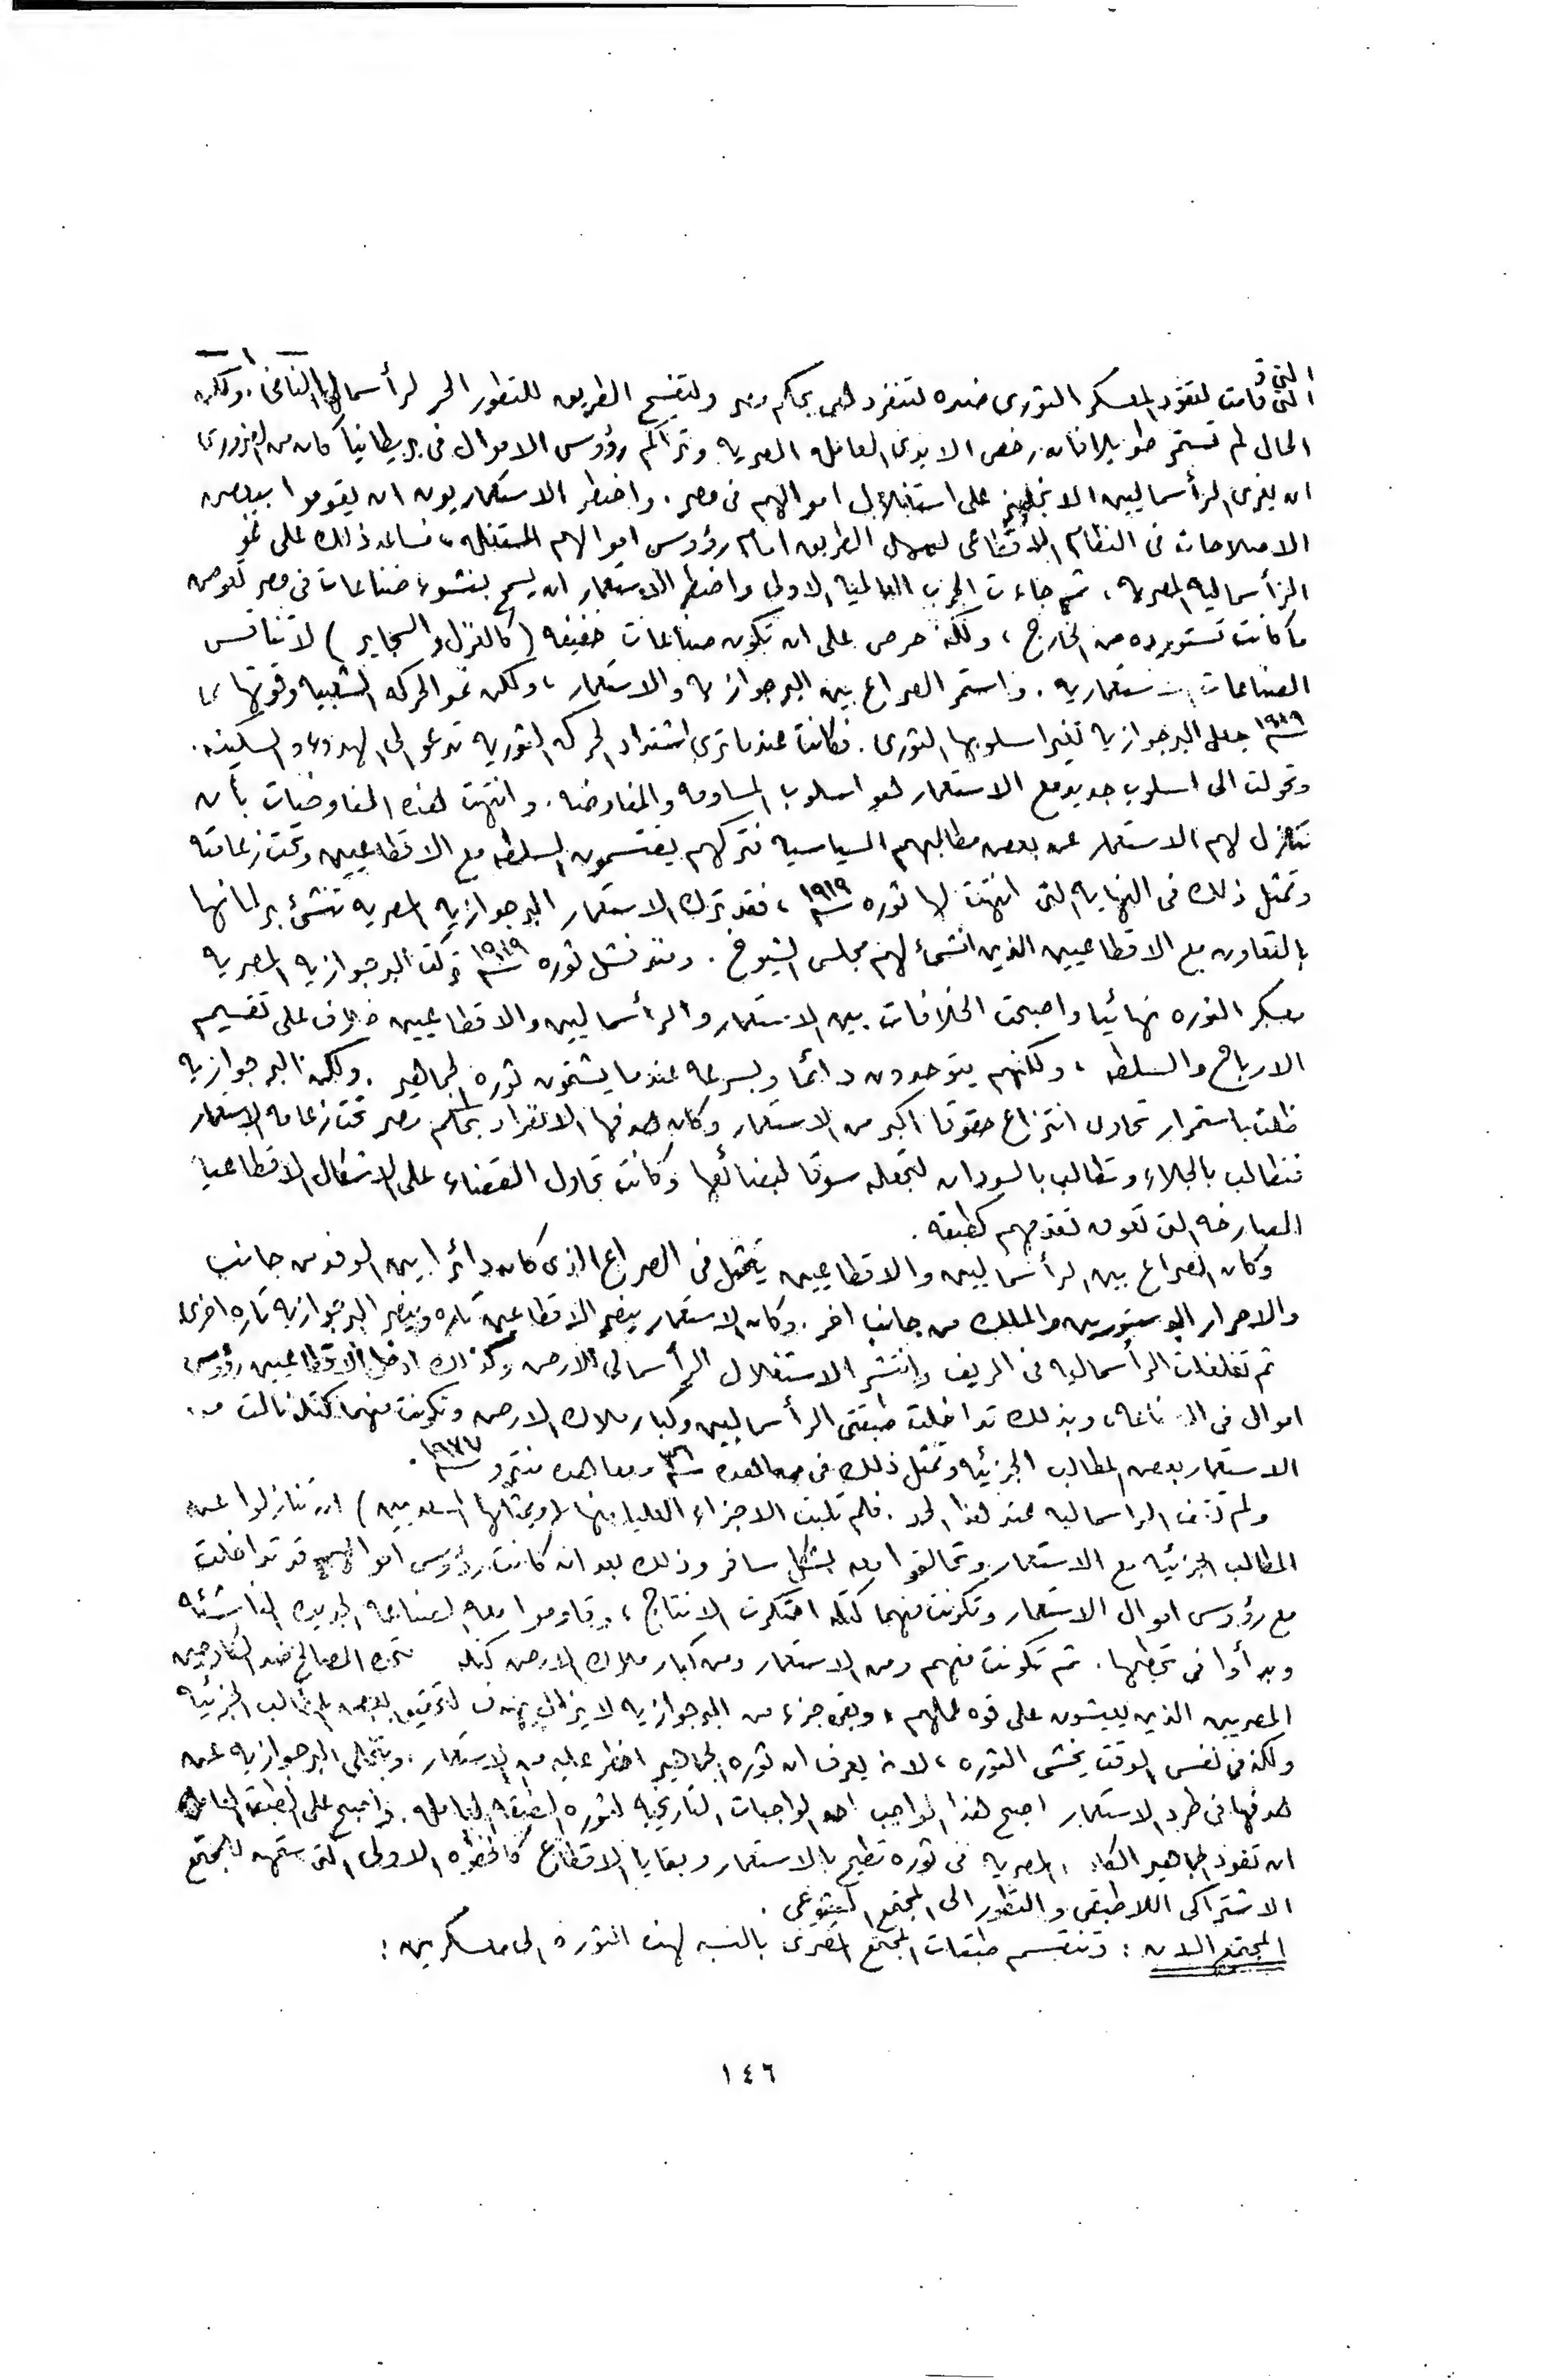 التى و
التى قامت لتقود المعسكر الثورى ضده لتنفرد هى بحكم مصر ولتفسح الطريق للتطور الحر لرأسمالها النامى. ولكن
الحال لم تستمر طويلا فان رخص الايدى العامله المصريه وتراكم رؤوس الاموال فى بريطانيا كان من الضرورى
ان يغرى الرأسماليين الانجليز على استغلال اموالهم فى مصر. واضطر الاستعماريون ان يقوموا ببعض
الاصلاحات فى النظام الاقطاعى الطريق امام رؤوس اموالهم المستغله، فساعد ذلك على نمو
الرأسماليه المصريه. ثم جاءت الحرب العالميه الاولى واضطر الاستعمار ان يسمح بنشوء صناعات فى مصر تعوض
ما كانت تستورده من الخارج، ولكنه حرص على ان تكون صناعات خفيفه (كالغزل والسجاير) لا تنافس
الصناعات الاستعماريه. واستمر الصراع بين البرجوازيه والاستعمار، ولكن نمو الحركه الشعبيه وقوتها
١٩١٩ جعل البرجوازيه تغير اسلوبها الثورى. فكانت عندما ترى اشتداد الحركه الثوريه تدعو الى الهدوء والسكينه.
وتحولت الى اسلوب جديد مع الاستعمار هو اسلوب المساومه والمفاوضه. وانتهت هذه المفاوضات بأن
تنازل لهم الاستعمار عن بعض مطالبهم السياسيه فتركهم يقتسمون السلطه مع الاقطاعيين وتحت زعامته
وتمثل ذلك فى النهايه التى انتهت لها ثوره سنه ١٩١٩، فقد ترك الاستعمار البرجوازيه المصريه تنشئ برلمانها
بالتعاون مع الاقطاعيين الذين انشئ لهم مجلس الشيوخ. ومنذ فشل ثوره سنه ١٩١٩ تركت البرجوازيه المصريه
معسكر الثوره نهائيا واصبحت الخلافات بين الاستعمار والرأسماليين والاقطاعيين خلاف على تقسيم
الارباح والسلطه، ولكنهم يتوحدون دائما وبسرعه عندما يشتمون ثوره الجماهير. ولكن البرجوازيه
ظلت باستمرار تحاول انتزاع حقوقا اكبر من الاستعمار وكان هدفها الانفراد بحكم مصر تحت زعامه الاستعمار
فتطالب بالجلاء وتطالب بالسودان لتجعله سوقا لبضائعها وكانت تحاول القضاء على الاشكال الاقطاعيا
الصارخه التى تعوق تقدمهم كطبقه.
وكان الصراع بين الرأسماليين والاقطاعيين يتمثل فى الصراع الذى كان دائرا بين الوفد من جانب
والاحرار الدستوريين والملك من جانب اخر. وكان الاستعمار ينصر الاقطاعيين تاره وينصر البرجوازيه تاره اخرى
ثم تغلغلت الرأسماليه فى الريف وانتشر الاستغلال الرأسمالى للارض وكذلك ادخل الاقطاعيين رؤوس
اموال فى الصناعه، وبذلك تداخلت طبقتى الرأسماليين وكبار ملاك الارض وتكونت منهما كتله نالت من
الاستعمار بعض المطالب الجزئيه وتمثل ذلك فى معاهده سنه ٣٦ ومعاهده منترو سنه ١٩٣٧.
ولم تقف الراسماليه عند هذا الحد. فلم تلبث الاجزاء العليا منها (ويمثلها السعديين) ان تنازلوا عن
المطالب الجزئيه مع الاستعمار وتحالفوا معه بشكل سافر وذلك بعد ان كانت رؤوس اموالهم قد تداخلت
مع رؤوس اموال الاستعمار وتكونت منهما كتله احتكرت الانتاج، وقاوموا معه الصناعه الجديده الناشئه
وبدأوا فى تحطيمها. ثم تكونت منهم ومن الاستعمار ومن كبار ملاك الارض كتله متحده المصالح ضد الكادحين
المصريين الذين يعيشون على قوه عملهم، وبقى جزء من البرجوازيه لا يزال يهدف لتحقيق بعض المطالب الجزئيه
ولكنه فى نفس الوقت يخشى الثوره، لانه يعرف ان ثوره الجماهير اخطر عليه من الاستعمار. وبتخلى البرجوازيه عن
هدفها فى طرد الاستعمار اصبح هذا الواجب احد الواجبات التاريخيه لثوره الطبقه العامله. واصبح على الطبقه العامله
ان تقود الجماهير المصريه فى ثوره تطيح بالاستعمار وبقايا الاقطاع كالخطوه الاولى التى ستمهد للمجتمع
الاشتراكى اللاطبقى والتطور الى المجتمع الشيوعى.
المجتمع الان: وتنقسم طبقات المجتمع المصرى بالنسبه لهذه الثوره الى معسكرين:
١٤٦